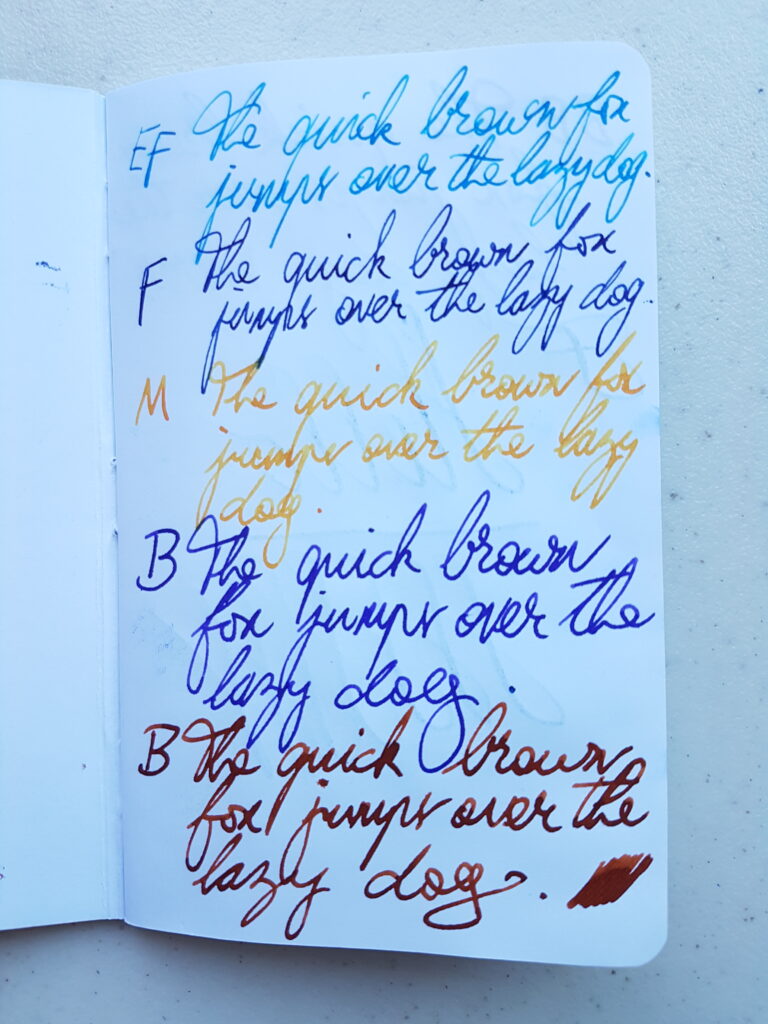 EF The quick brown fox
jumps over the lazy dog.
F The quick brown fox
jumps over the lazy dog.
M The quick brown fox
jumps over the lazy
dog.
B The quick brown
fox jumps over the
lazy dog.
B The quick brown
fox jumps over the
lazy dog.